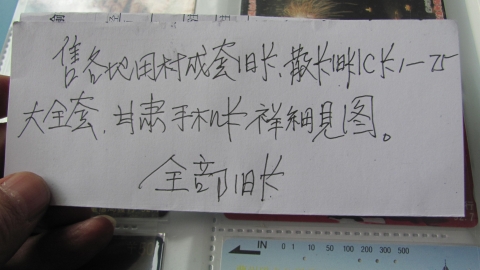 售各地田村成套旧卡、散卡旧IC卡1一75
大全套.甘肃手机卡祥細見图。
全部旧卡
IN 0 1 10 50 100 300 500